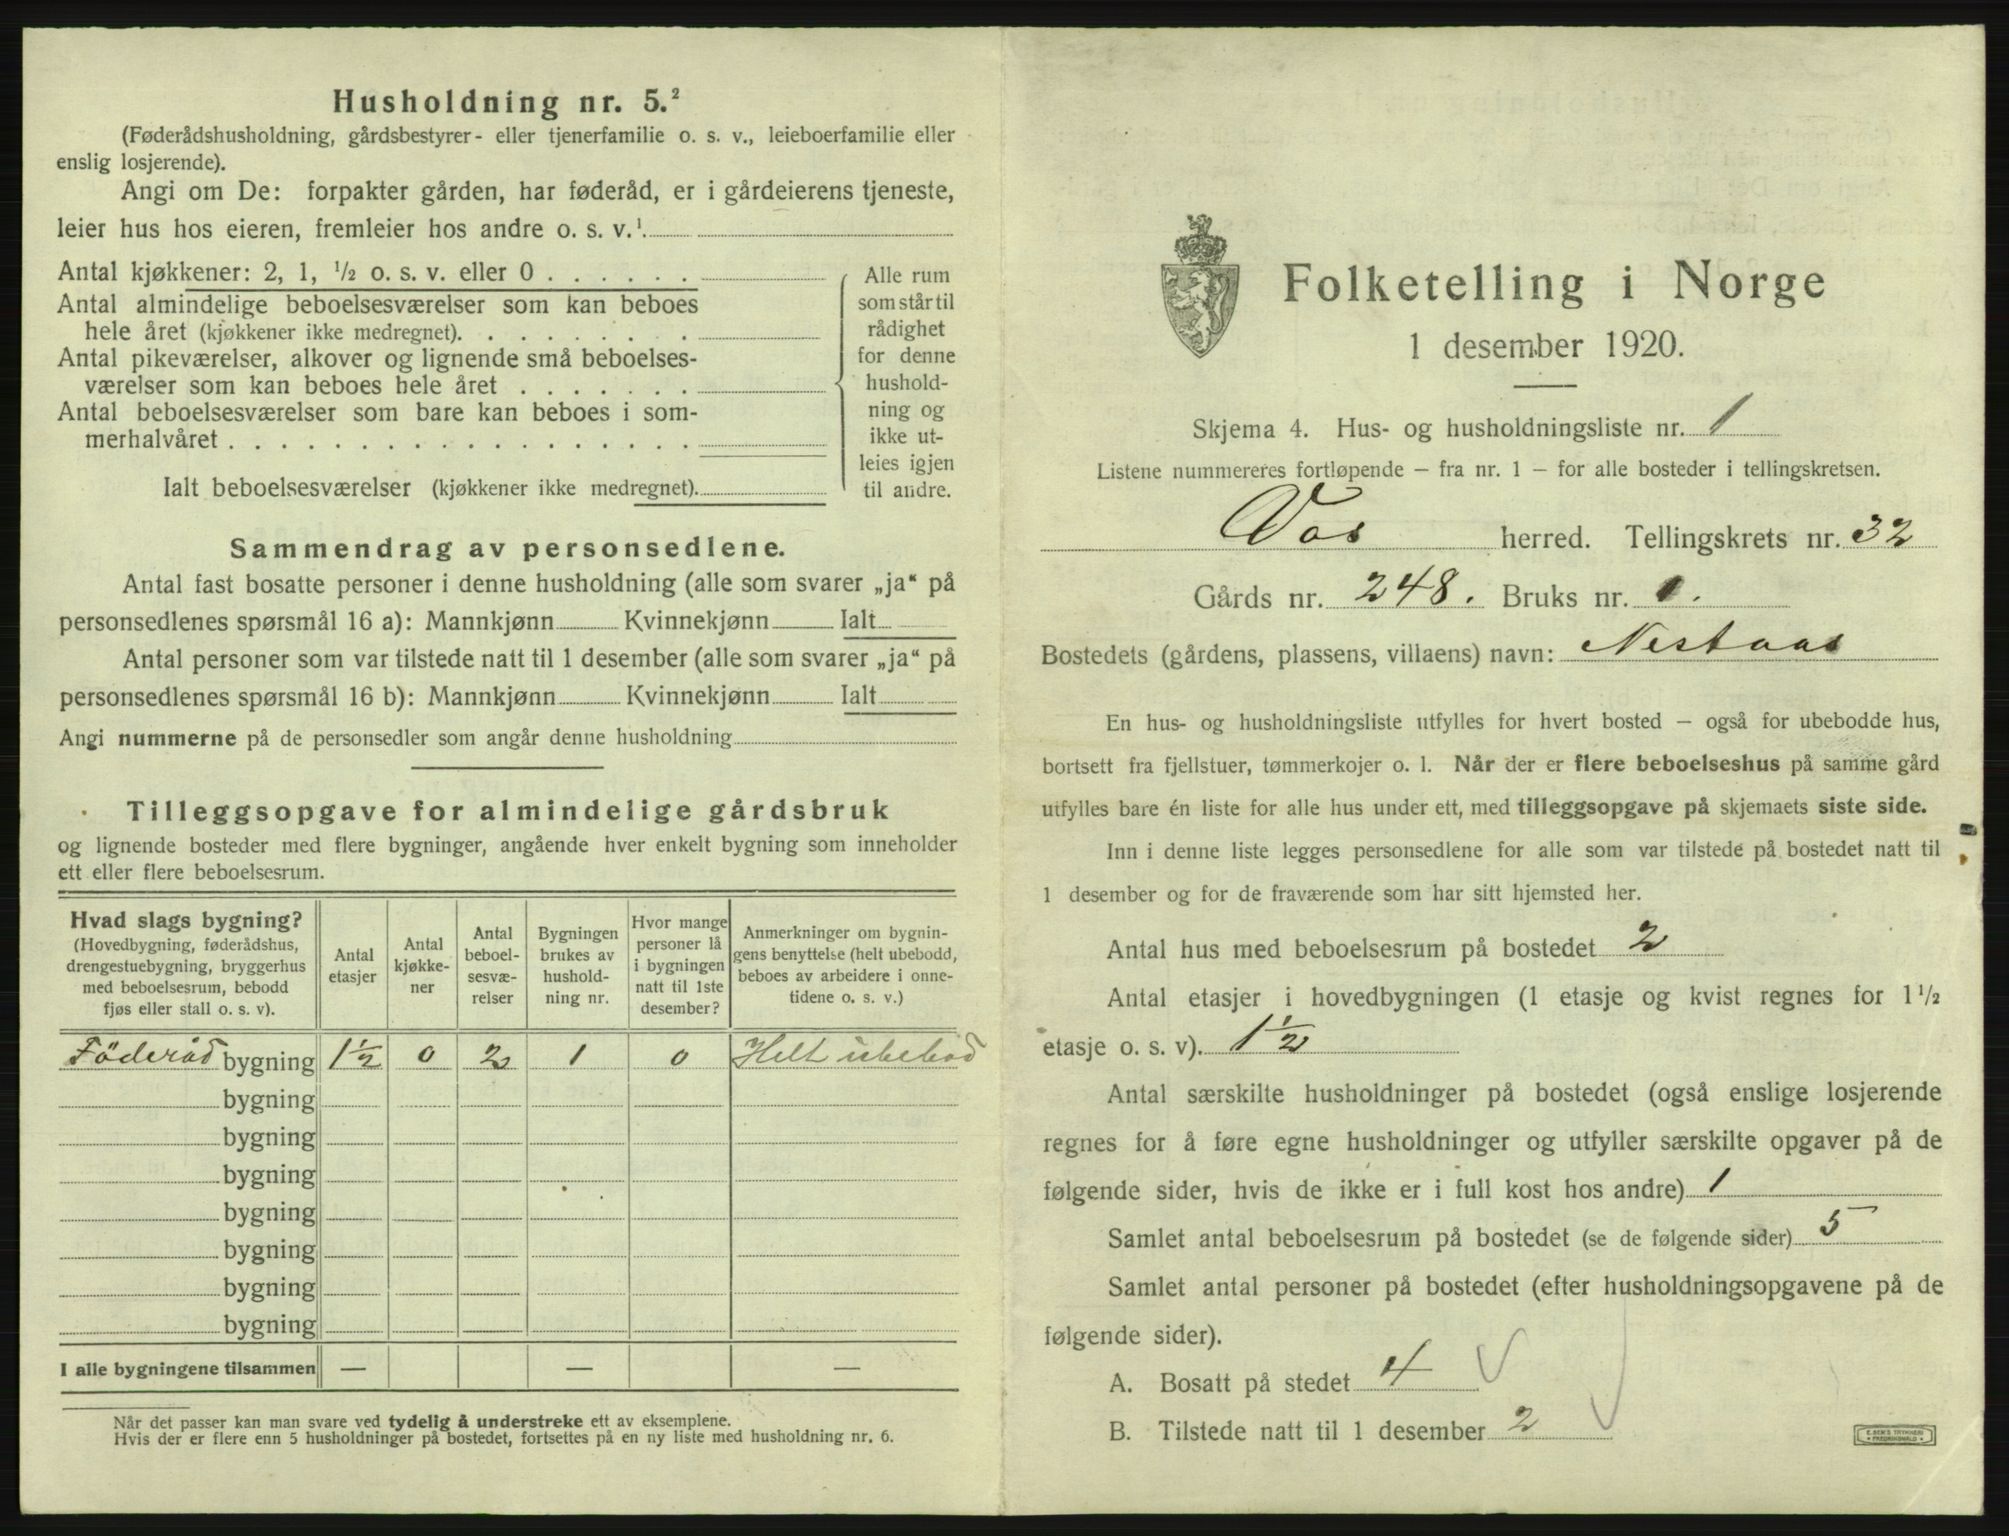 Husholdning nr. 5.²
(Føderådshusholdning, gårdsbestyrer- eller tjenerfamilie o. s. v., leieboerfamilie eller
enslig losjerende).
Angi om De: forpakter gården, har føderåd, er i gårdeierens tjeneste,
leier hus hos eieren, fremleier hos andre o. s. v.¹
Antal kjøkkener: 2, 1, ½ o. s. v. eller 0 . . . . . .
Antal almindelige beboelsesværelser som kan beboes
hele året (kjøkkener ikke medregnet). . . . . . . .
Antal pikeværelser, alkover og lignende små beboelses-
værelser som kan beboes hele året . . . . . . .
Antal beboelsesværelser som bare kan beboes i som-
merhalvåret . . . . . . . . . . . . . . . . . .
Ialt beboelsesværelser (kjøkkener ikke medregnet).
Alle rum
som står til
rådighet
for denne
hushold-
ning og
ikke ut-
leies igjen
til andre.
Sammendrag av personsedlene.
Antal fast bosatte personer i denne husholdning (alle som svarer „ja“ på
personsedlenes spørsmål 16 a): Mannkjønn Kvinnekjønn Ialt
Antal personer som var tilstede natt til 1 desember (alle som svarer „ja“ på
personsedlenes spørsmål 16 b): Mannkjønn Kvinnekjønn Ialt
Angi nummerne på de personsedler som angår denne husholdning
Tilleggsopgave for almindelige gårdsbruk
og lignende bosteder med flere bygninger, angående hver enkelt bygning som inneholder
ett eller flere beboelsesrum.
Hvad slags bygning?
(Hovedbygning, føderådshus,
drengestuebygning, bryggerhus
med beboelsesrum, bebodd
fjøs eller stall o. s. v).
Antal
etasjer
Antal
kjøkke-
ner
Antal
beboel-
sesvæ-
relser
Bygningen
brukes av
hushold-
ning nr.
Hvor mange
personer lå
i bygningen
natt til 1ste
desember?
Anmerkninger om bygnin-
gens benyttelse (helt ubebodd,
beboes av arbeidere i onne-
tidene o. s. v.)
Föderåd bygning 1½ 0 2 1 0 Helt ubebod
bygning
bygning
bygning
bygning
bygning
bygning
bygning
I alle bygningene tilsammen — — —
Når det passer kan man svare ved tydelig å understreke ett av eksemplene.
Hvis der er flere enn 5 husholdninger på bostedet, fortsettes på en ny liste med husholdning nr. 6.
Folketelling i Norge
1 desember 1920.
Skjema 4. Hus- og husholdningsliste nr. 1
Listene nummereres fortløpende — fra nr. 1 — for alle bosteder i tellingskretsen.
Vos herred. Tellingskrets nr. 32
Gårds nr. 248. Bruks nr. 1.
Bostedets (gårdens, plassens, villaens) navn: Nestaas
En hus- og husholdningsliste utfylles for hvert bosted — også for ubebodde hus,
bortsett fra fjellstuer, tømmerkojer o. l. Når der er flere beboelseshus på samme gård
utfylles bare én liste for alle hus under ett, med tilleggsopgave på skjemaets siste side.
Inn i denne liste legges personsedlene for alle som var tilstede på bostedet natt til
1 desember og for de fraværende som har sitt hjemsted her.
Antal hus med beboelsesrum på bostedet 2
Antal etasjer i hovedbygningen (1 etasje og kvist regnes for 1½
etasje o. s. v). 1½
Antal særskilte husholdninger på bostedet (også enslige losjerende
regnes for å føre egne husholdninger og utfyller særskilte opgaver på de
følgende sider, hvis de ikke er i full kost hos andre) 1
Samlet antal beboelsesrum på bostedet (se de følgende sider) 5
Samlet antal personer på bostedet (efter husholdningsopgavene på de
følgende sider).
A. Bosatt på stedet 4
B. Tilstede natt til 1 desember 2
E. SEM'S TRYKKERI
FREDRIKSHALD